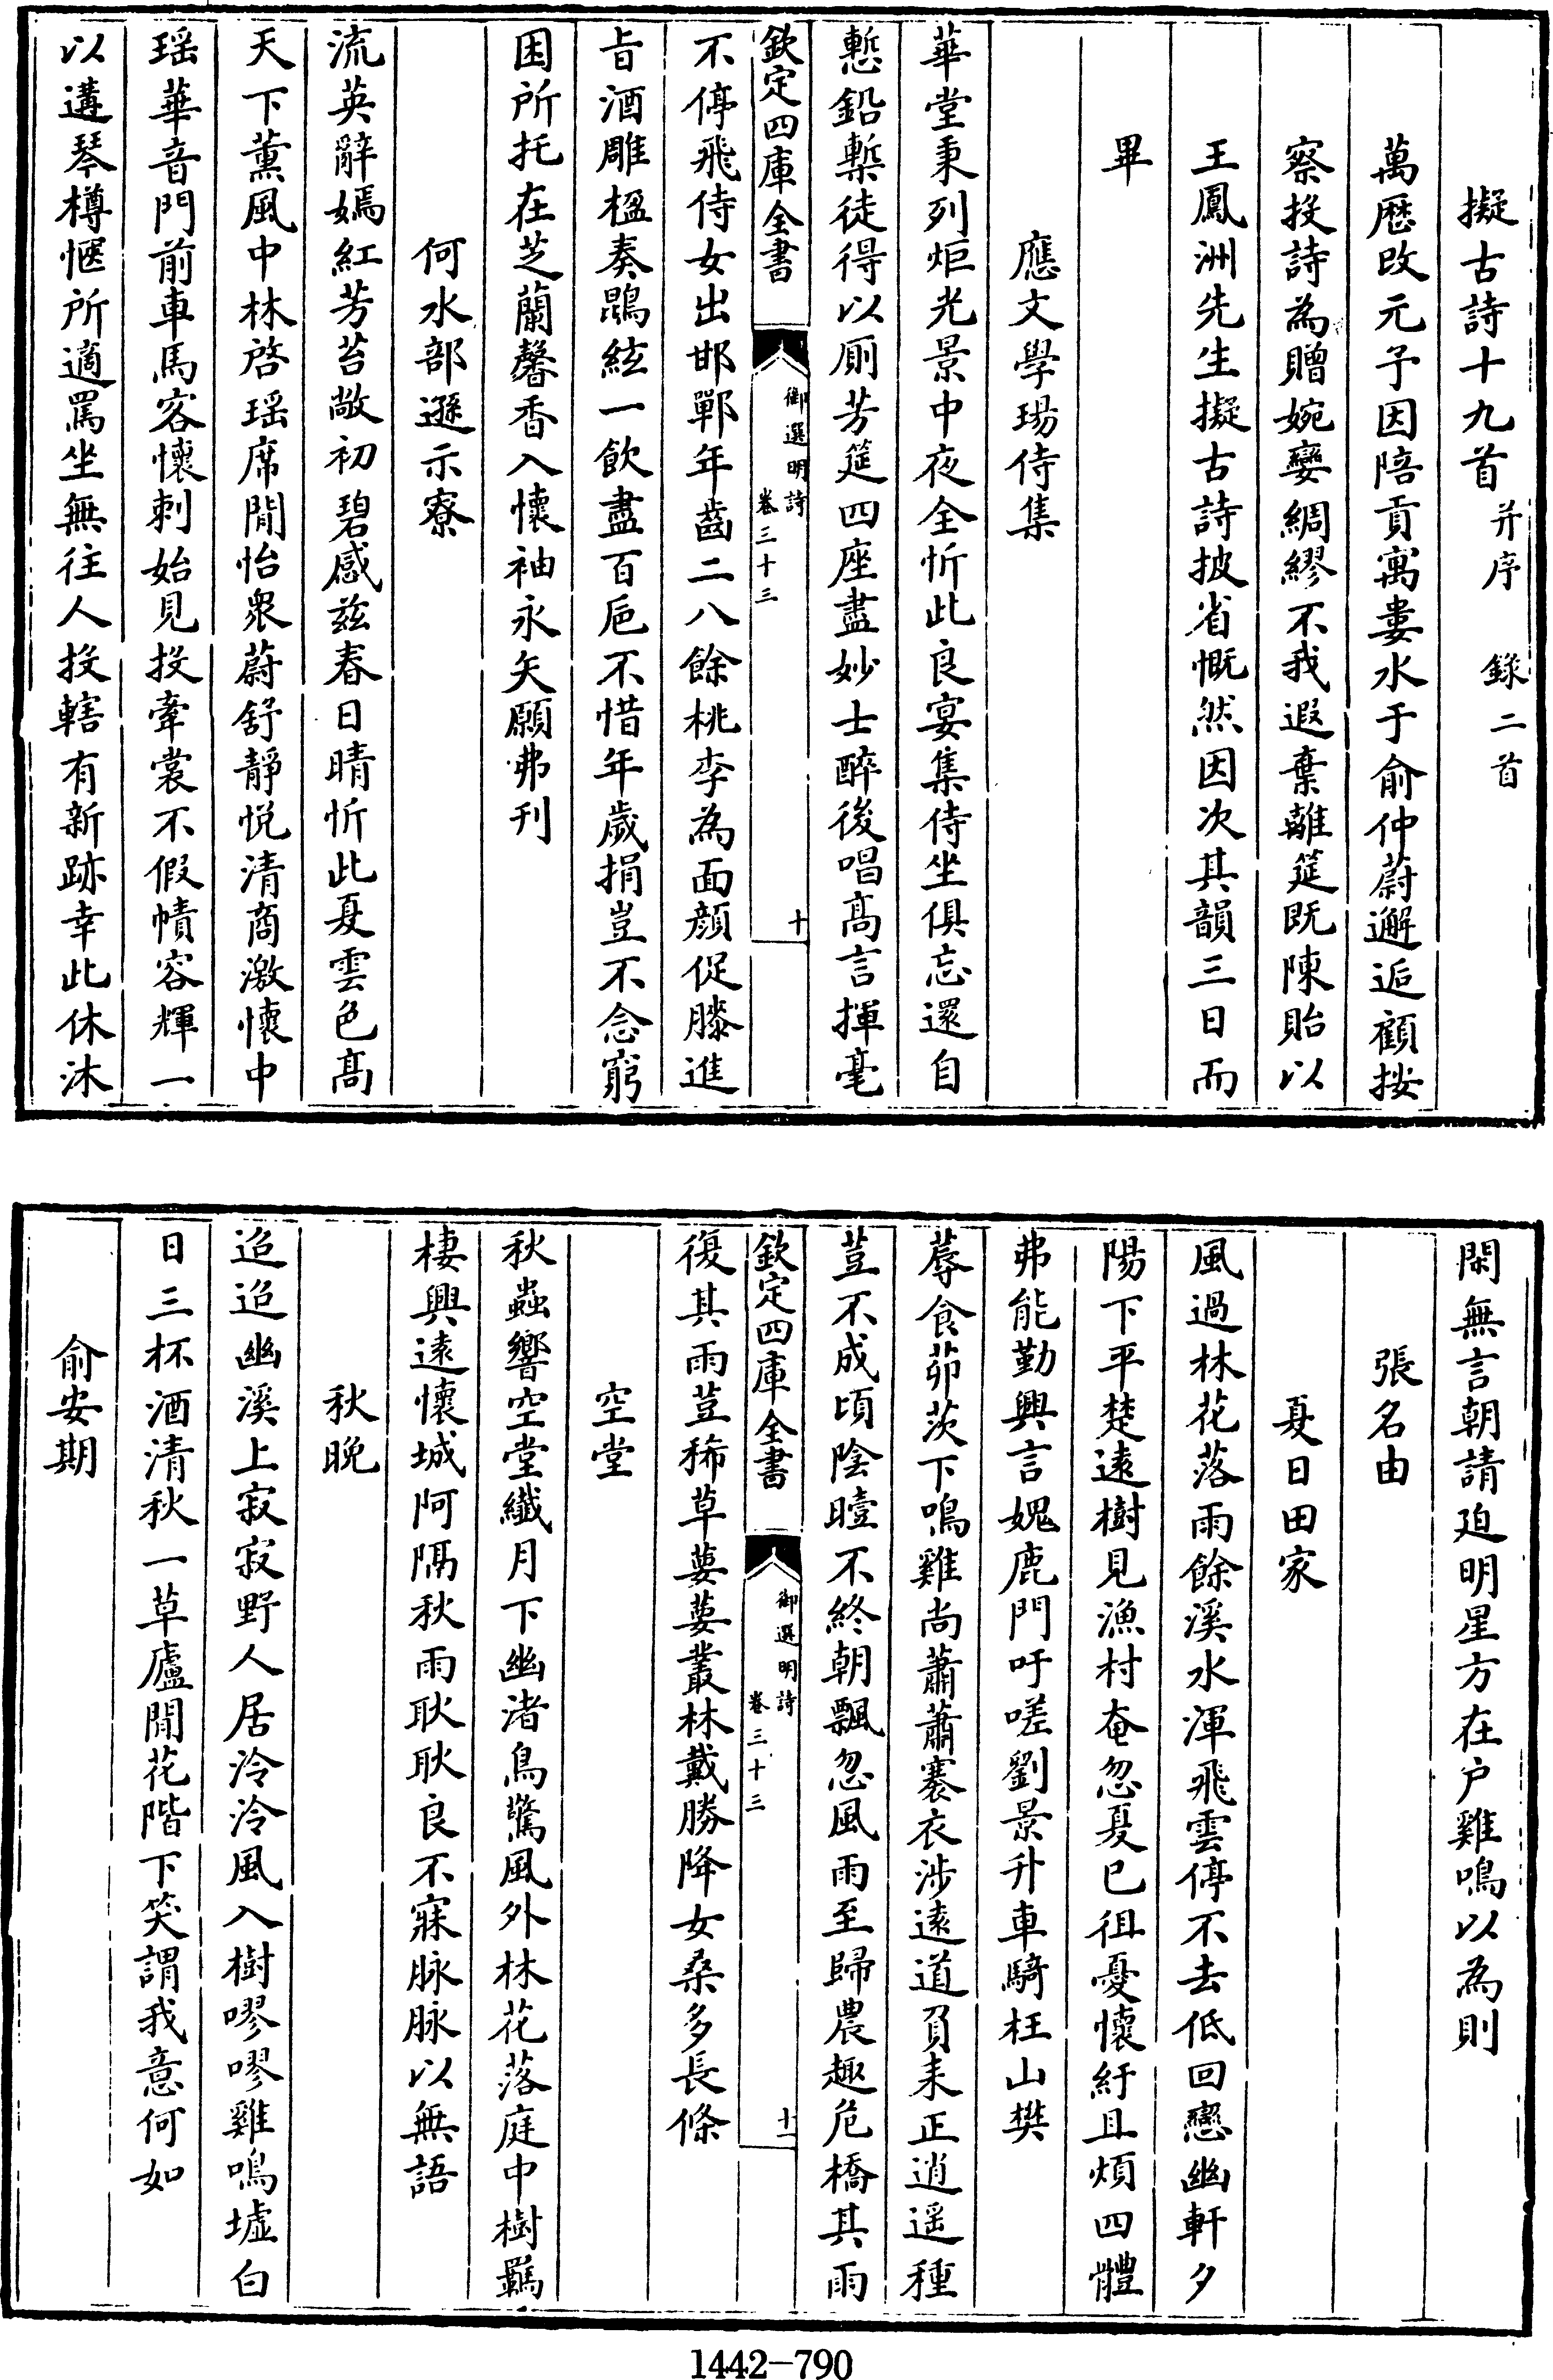 擬古詩十九首并序 錄二首
萬厯改元予因陪貢寓婁水于俞仲蔚邂逅顧按
察投詩為贈婉孌綢繆不我遐棄離筵既陳貽以
王鳳洲先生擬古詩披省慨然因次其韻三日而
畢
應文學瑒侍集
華堂秉列炬光景中夜全忻此良宴集侍坐俱忘還自
慙鉛槧徒得以厠芳筵四座盡妙士醉後唱髙言揮毫
欽定四庫全書
御選明詩
卷三十三
十
不停飛侍女出邯鄲年齒二八餘桃李為面顔促膝進
㫖酒雕楹奏鵾絃一飲盡百巵不惜年歲捐豈不念窮
困所托在芝蘭馨香入懷袖永矢願弗刋
何水部遜示寮
流英辭嫣紅芳苔敞初碧感兹春日晴忻此夏雲色髙
天下薰風中林啓瑶席閒怡衆蔚舒靜悦清商激懷中
瑶華音門前車馬客懷刺始見投搴裳不假幘容輝一
以遘琴樽愜所適罵坐無往人投轄有新跡幸此休沐
閑無言朝請迫明星方在户雞鳴以為則
張名由
夏日田家
風過林花落雨餘溪水渾飛雲停不去低回戀幽軒夕
陽下平楚遠樹見漁村奄忽夏已徂憂懷紆且煩四體
弗能勤興言媿鹿門吁嗟劉景升車騎枉山樊
蓐食茆茨下鳴雞尚蕭蕭褰衣涉遠道負耒正逍遥種
荳不成頃陰曀不終朝飄忽風雨至歸農趣危橋其雨
欽定四庫全書
御選明詩
卷三十三
十一
復其雨荳稀草萋萋叢林戴勝降女桑多長條
空堂
秋蟲響空堂纎月下幽渚鳥驚風外林花落庭中樹羈
棲興遠懷城阿隔秋雨耿耿良不寐脉脉以無語
秋晚
迢迢幽溪上寂寂野人居泠泠風入樹嘐嘐雞鳴墟白
日三杯酒清秋一草廬閒花階下笑謂我意何如
俞安期
1442-790